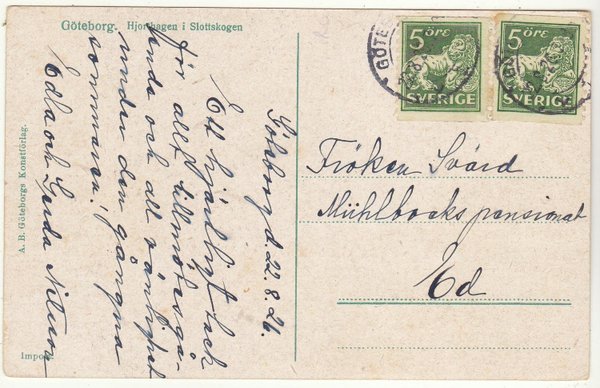 Göteborg. Hjorthagen i Slottskogen
A. B. Göteborgs Konstförlag.
Import.
Göteborg d. 22.8.26.
Ett hjärtligt tack
för allt tillmötesgå-
ende och all vänlighet
under den gångna
sommaren,
Edla och Gerda Nilsson
5 ÖRE
SVERIGE
5 ÖRE
SVERIGE
Fröken Svärd
Mühlbocks pensionat
Ed